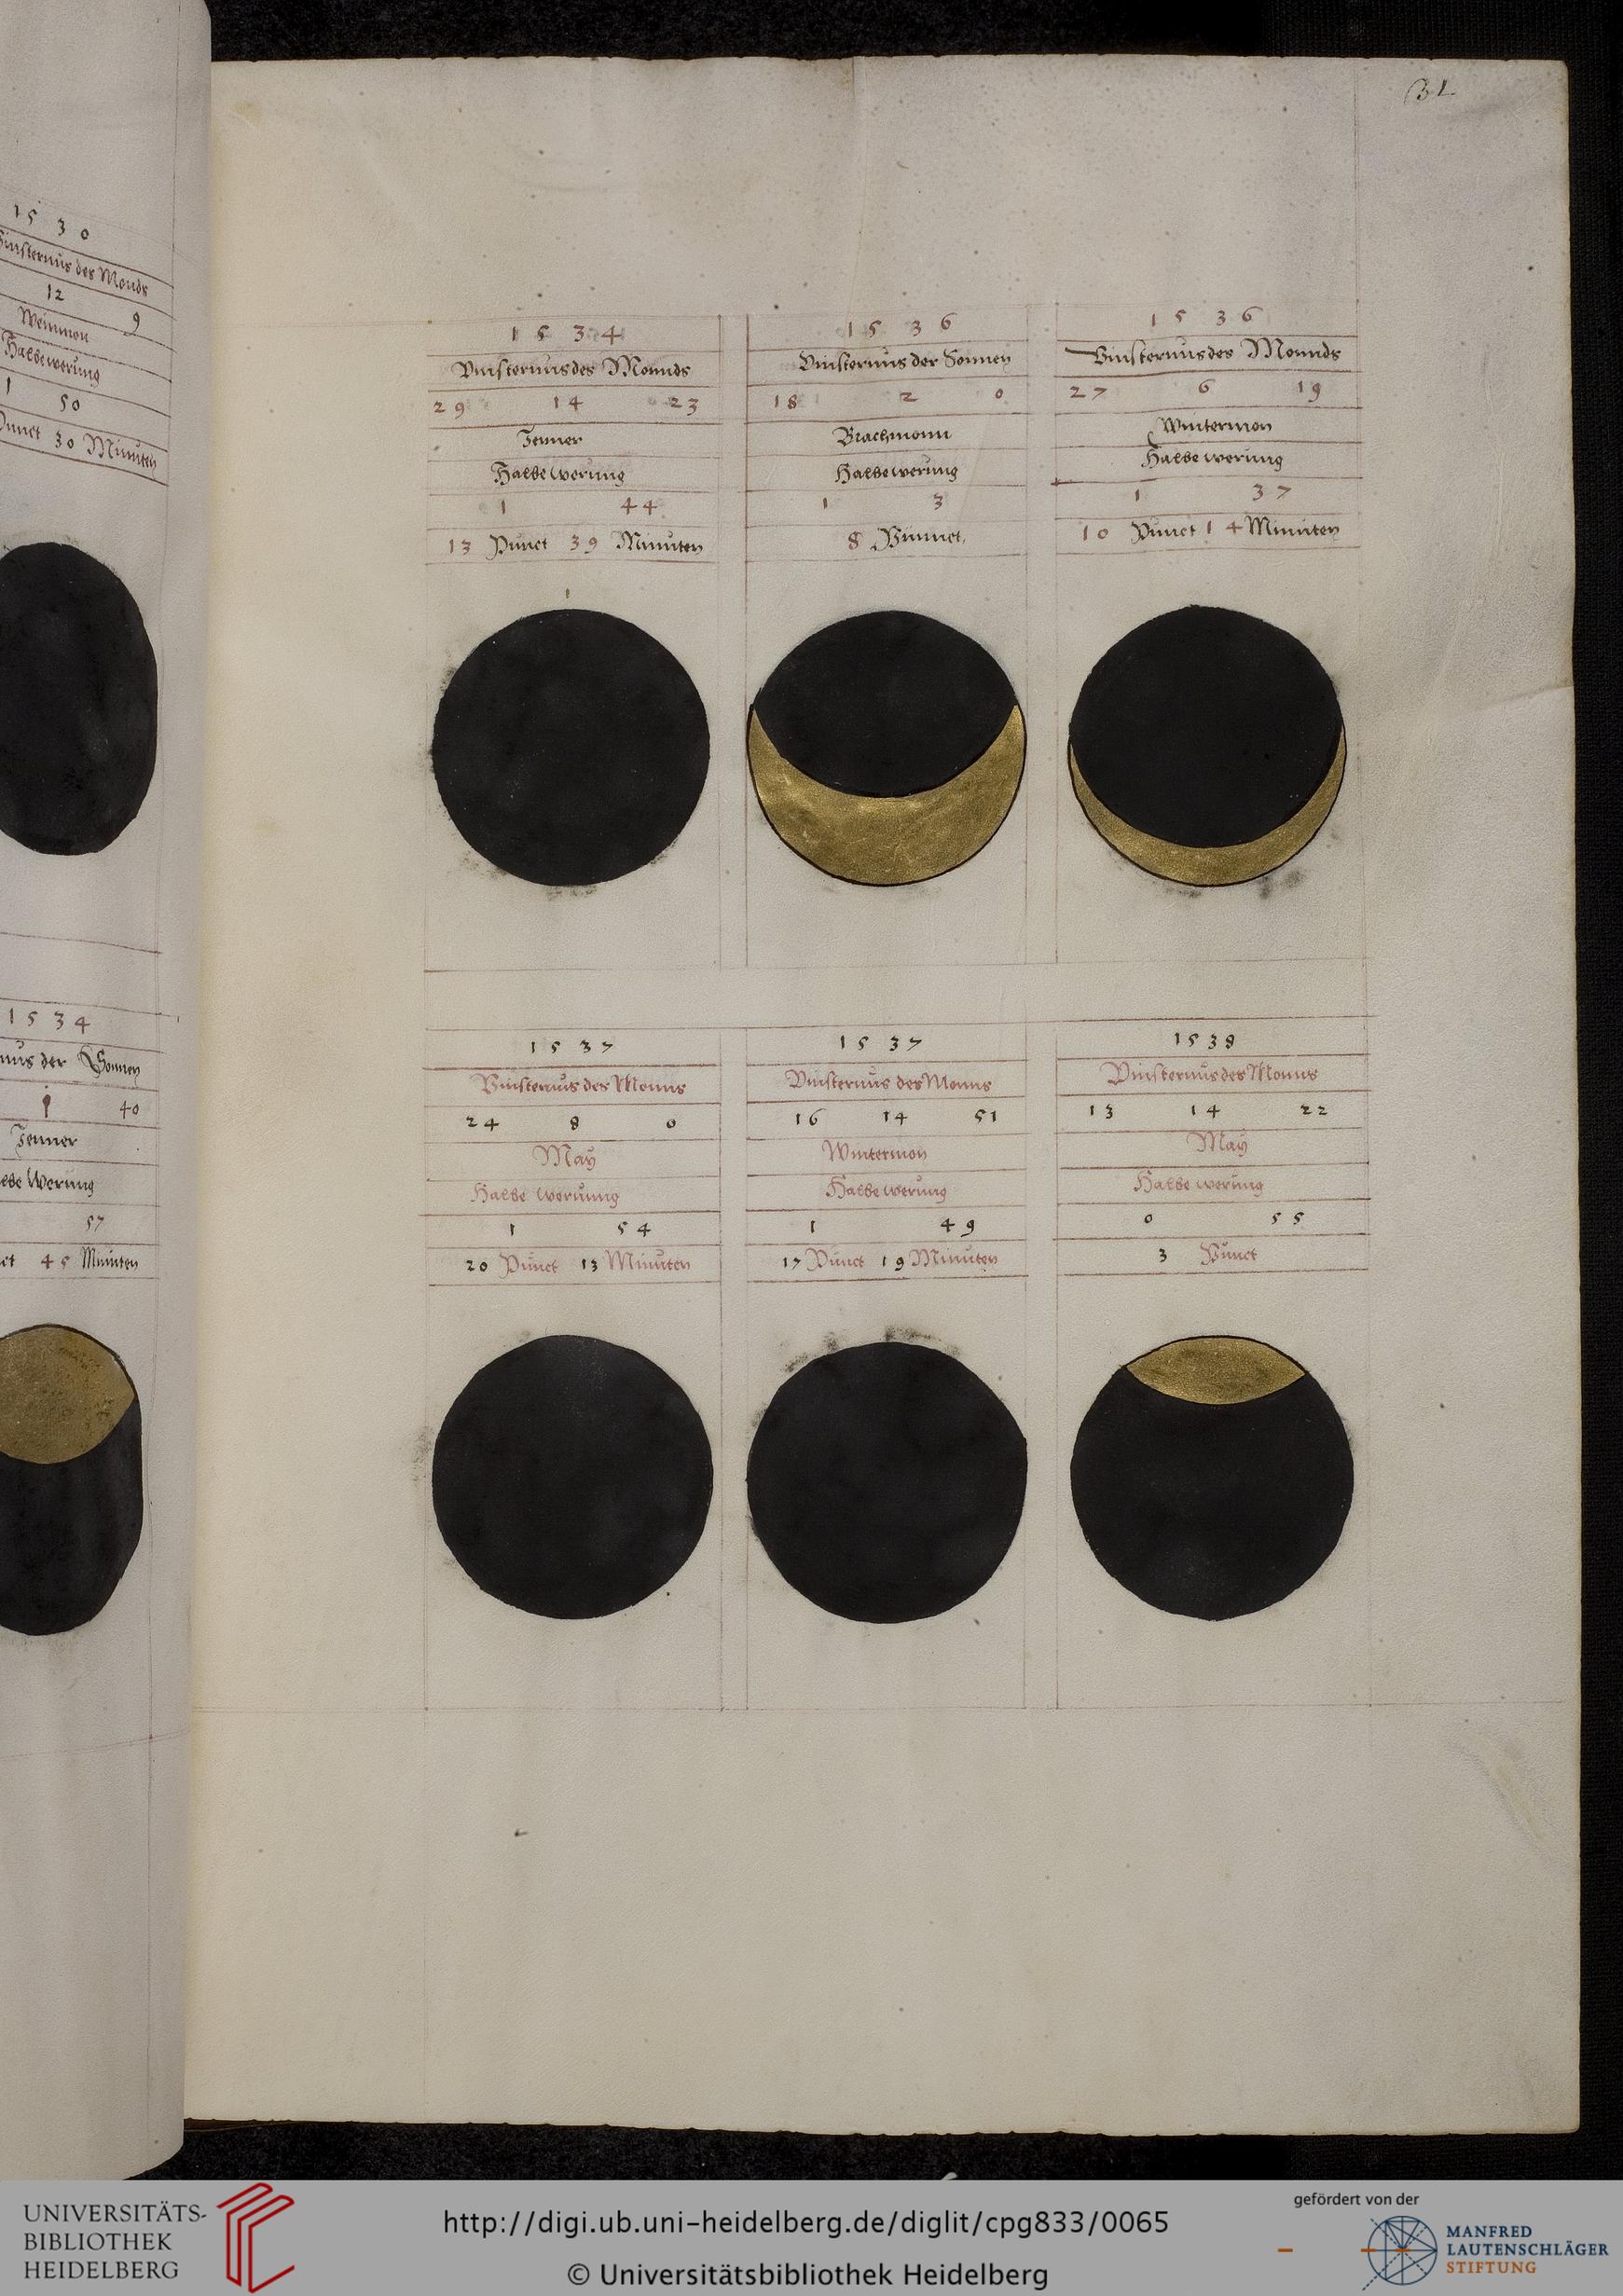 1 5 3 0
Finsternus des Monds
12 9
Weinmon
Halbe werung
1 50
Punct 30 Minuten
1 5 3 4
nus der Sonnen
40
Jenner
lbe Werung
57
ct 45 Minuten
31
1 5 3 4
Vinsternus des Monnds
29 14 23
Jenner
Halbe werung
1 44
13 Punct 39 Minuten
1 5 3 6
Vinsternus der Sonnen
18 2 0
Brachmonn
Halbe werung
1 3
8 Punnct
1 5 3 6
Vinsternus des Monnds
27 6 19
Wintermon
Halbe werung
1 37
10 Punct 14 Minuten
1 5 3 7
Vinsternus des Monns
24 8 0
May
Halbe werunng
1 54
20 Punct 13 Minuten
1 5 3 7
Vinsternus des Monns
16 14 51
Wintermon
Halbe werung
1 49
17 Punct 19 Minuten
1 5 3 8
Vinsternus des Monns
13 14 22
May
Halbe werung
0 55
3 Punct
UNIVERSITÄTS-
BIBLIOTHEK
HEIDELBERG
http://digi.ub.uni-heidelberg.de/diglit/cpg833/0065
© Universitätsbibliothek Heidelberg
gefördert von der
MANFRED
LAUTENSCHLÄGER
STIFTUNG